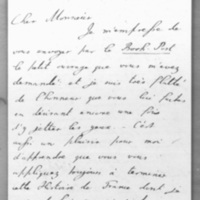 Cher Monsieur
Je m'empresse de
vous envoyer par le Book Post
le petit ouvrage que vous m'avez
demandé et je suis très flatté
de l'honneur que vous lui faites
en désirant encore une fois
d'y jetter les yeux. C'est
aussi un plaisir pour moi
d'apprendre que vous vous
appliquez toujours à terminer
cette Histoire de